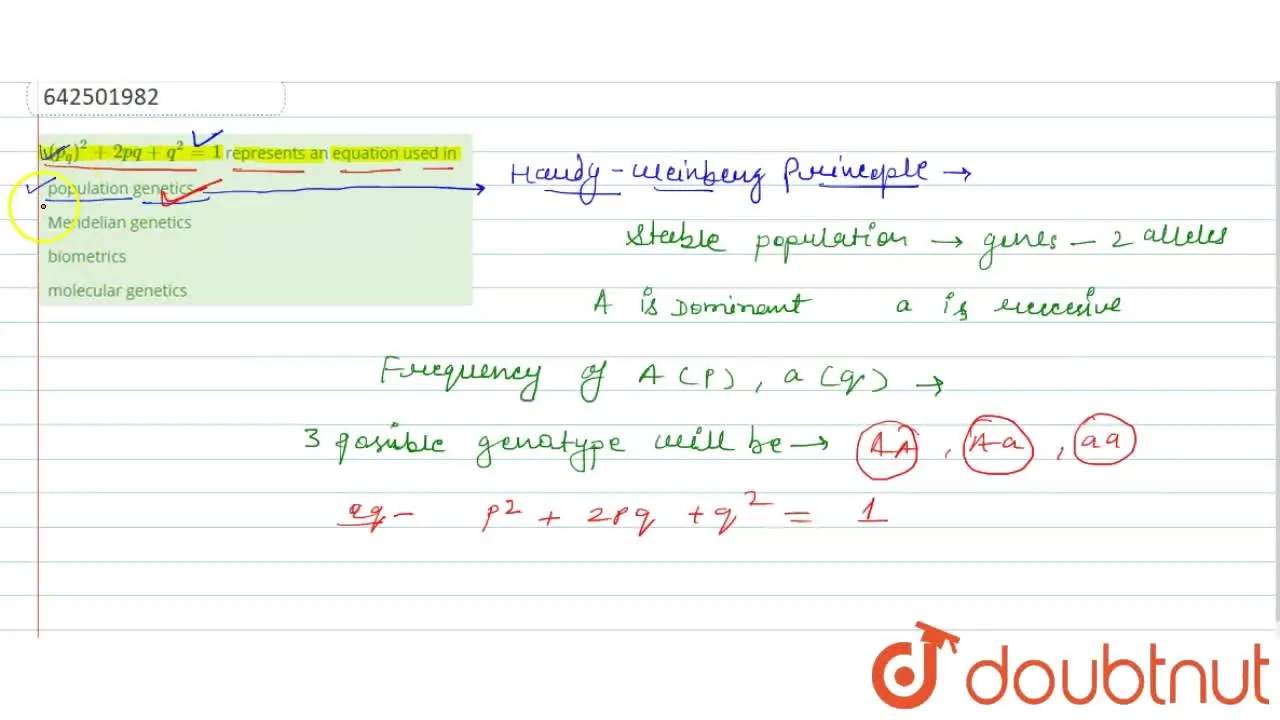 642501982
(p_q)² + 2pq + q² = 1 represents an equation used in
population genetics
Mendelian genetics
biometrics
molecular genetics
Hardy-Weinberg Principle →
Stable population → genes – 2 alleles
A is Dominant a is reccesive
Frequency of A (P), a (q) →
3 possible genotype will be → AA, Aa, aa
eq - p² + 2pq + q² = 1
doubtnut